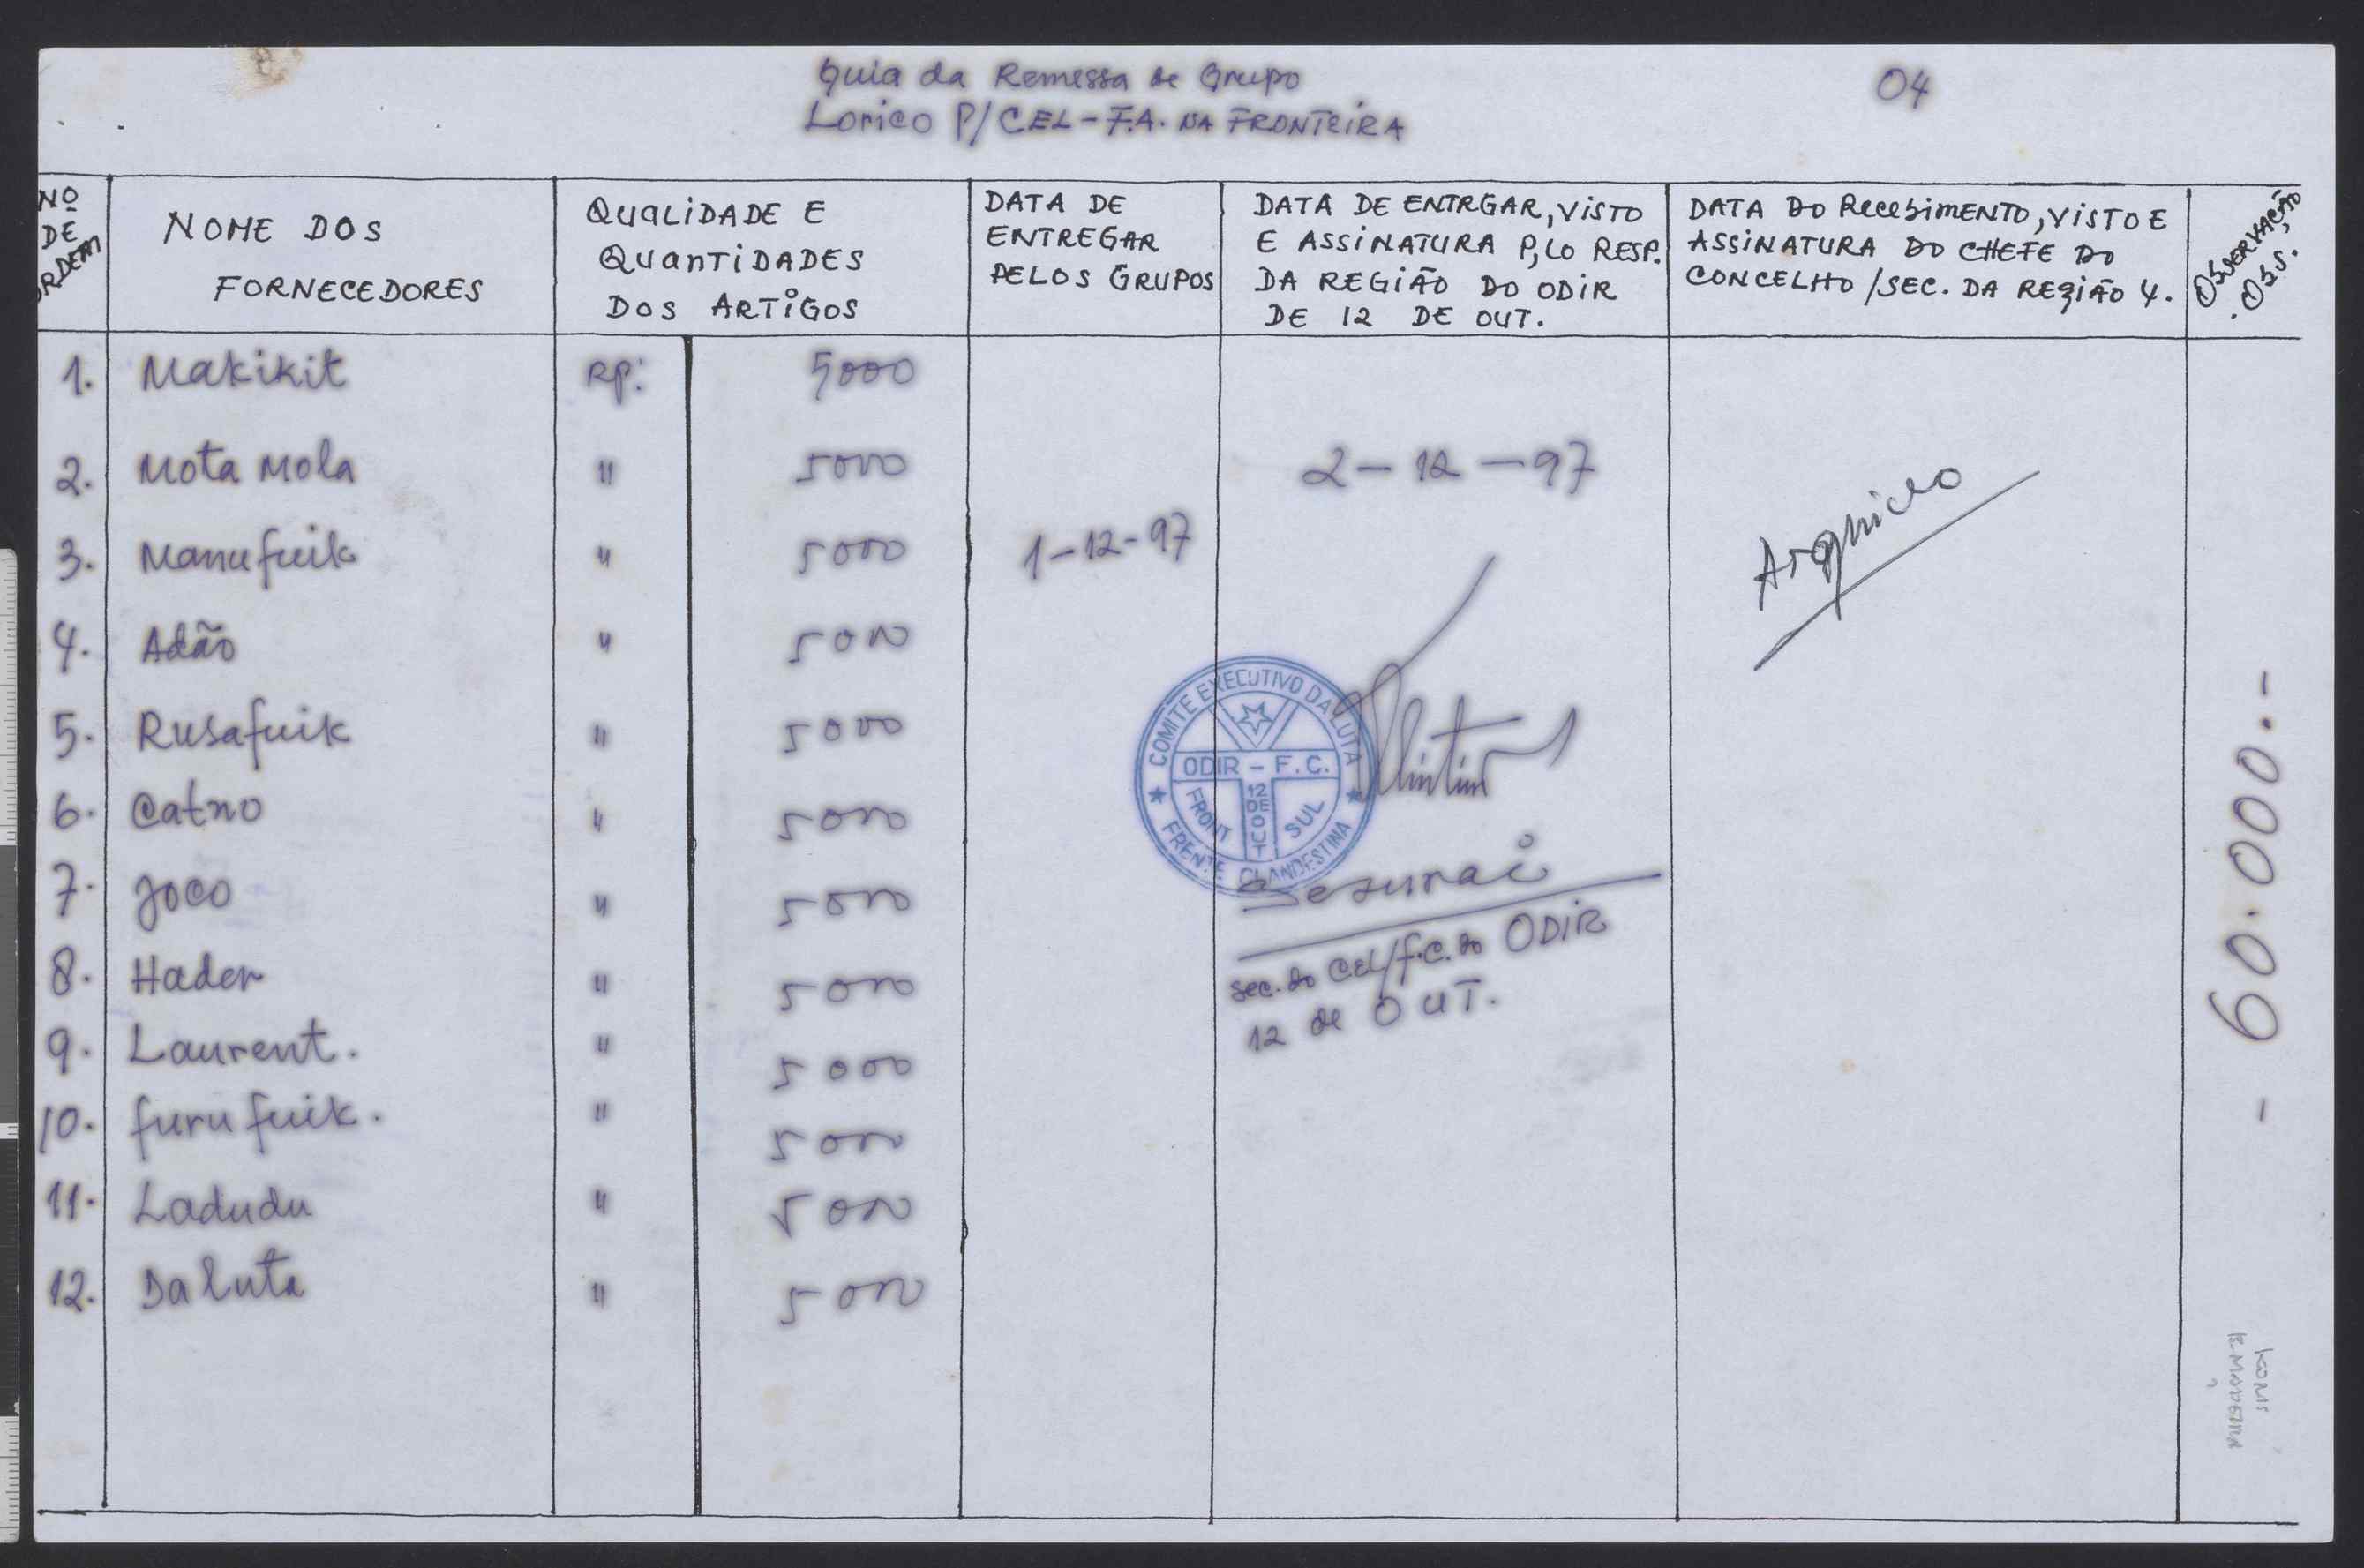 Guia da Remessa de Grupo
Lorico P/CEL-F.A. NA FRONTEIRA
04
Nº
DE
ORDEM
NOME DOS
FORNECEDORES
QUALIDADE E
QUANTIDADES
DOS ARTIGOS
DATA DE
ENTREGAR
PELOS GRUPOS
DATA DE ENTRGAR, VISTO
E ASSINATURA P,LO RESP.
DA REGIÃO DO ODIR
DE 12 DE OUT.
DATA DO RECEBIMENTO, VISTO E
ASSINATURA DO CHEFE DO
CONCELHO /SEC. DA REGIÃO 4.
OBSERVAÇÃO
.OBS.
1. Makikit RP: 5000
2. Mota Mola " 5000
3. Manufuik " 5000
4. Adão " 5000
5. Rusafuik " 5000
6. Catno " 5000
7. Joco " 5000
8. Hader " 5000
9. Laurent. " 5000
10. furu fuik. " 5000
11. Ladudu " 5000
12. Da luta " 5000
1-12-97
2-12-97
COMITE EXECUTIVO DA LUTA
ODIR - F.C.
FRONT 12 DE OUT SUL
FRENTE CLANDESTINA
sec. do CEL/F.C. do ODIR
12 de OUT.
- 60.000.-